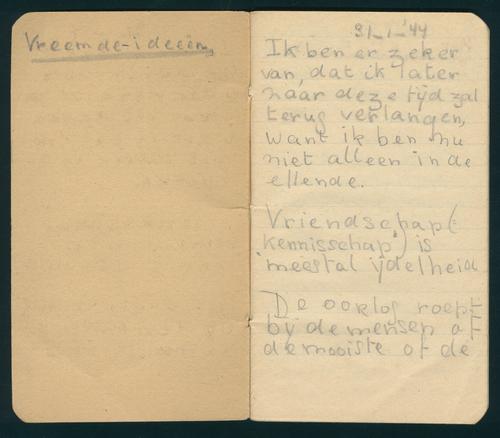 Vreemde-ideeën
31-1-'44
Ik ben er zeker
van, dat ik later
naar deze tijd zal
terug verlangen,
want ik ben nu
niet alleen in de
ellende.
Vriendschap (=
'kennisschap') is
meestal ijdelheid
De oorlog roept
bij de mensen òf
de mooiste of de